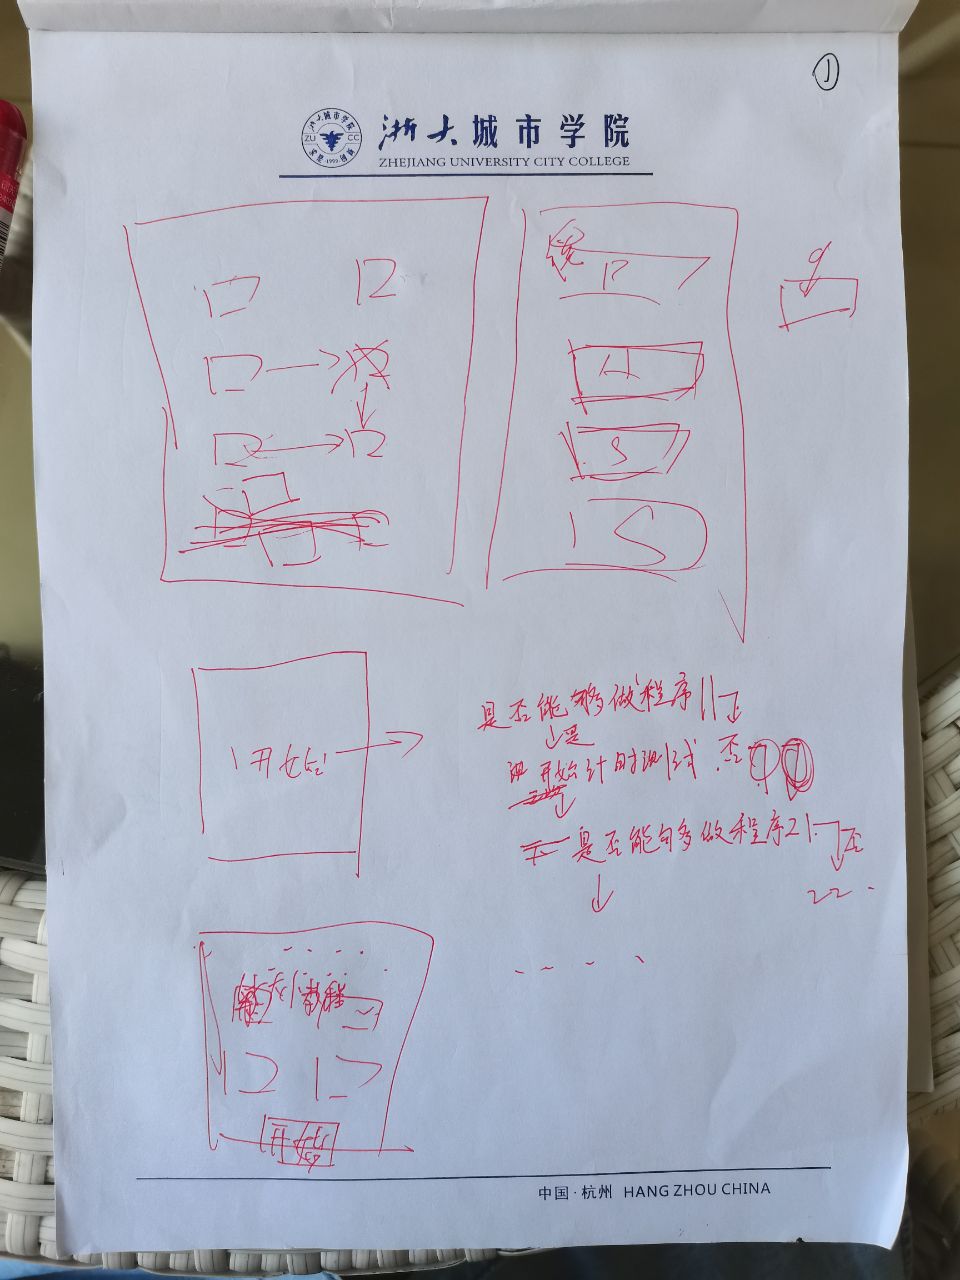 ①
浙大城市学院
ZHEJIANG UNIVERSITY CITY COLLEGE
ZU CC
1999
统
A
S
S
开始
是否能够做程序1
是
开始计时测试 否
是否能够做程序2 否
开始
中国·杭州 HANG ZHOU CHINA